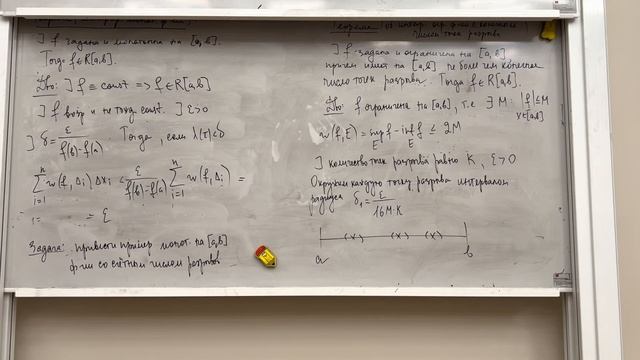 ] f задана и монотонна на [a,b].
Тогда f∈R[a,b].
Д-во: ] f ≡ const => f∈R[a,b]
] f возр и не тожд const. ] ε>0
] δ = ε / (f(b)-f(a)). Тогда, если λ(τ)<δ
∑_{i=1}^{n} w(f,Δi)Δxi ≤ ε / (f(b)-f(a)) ∑_{i=1}^{n} w(f,Δi) =
= ε
Задача: привести пример монот. на [a,b]
ф-ии со счётным числом разрывов
числом точек разрыва
] f - задана и ограничена на [a,b]
причем имеет на [a,b] не более чем конечное
число точек разрыва. Тогда f∈R[a,b].
Д-во: f ограничена на [a,b], т.е ∃ M: |f|≤M
x∈[a,b]
w(f,E) = sup f - inf f ≤ 2M
E E
] количество точек разрывов равно K, ε>0
Окружим каждую точку разрыва интервалом
радиуса δ₁ = ε / 16M·K
a (x) (x) (x) b